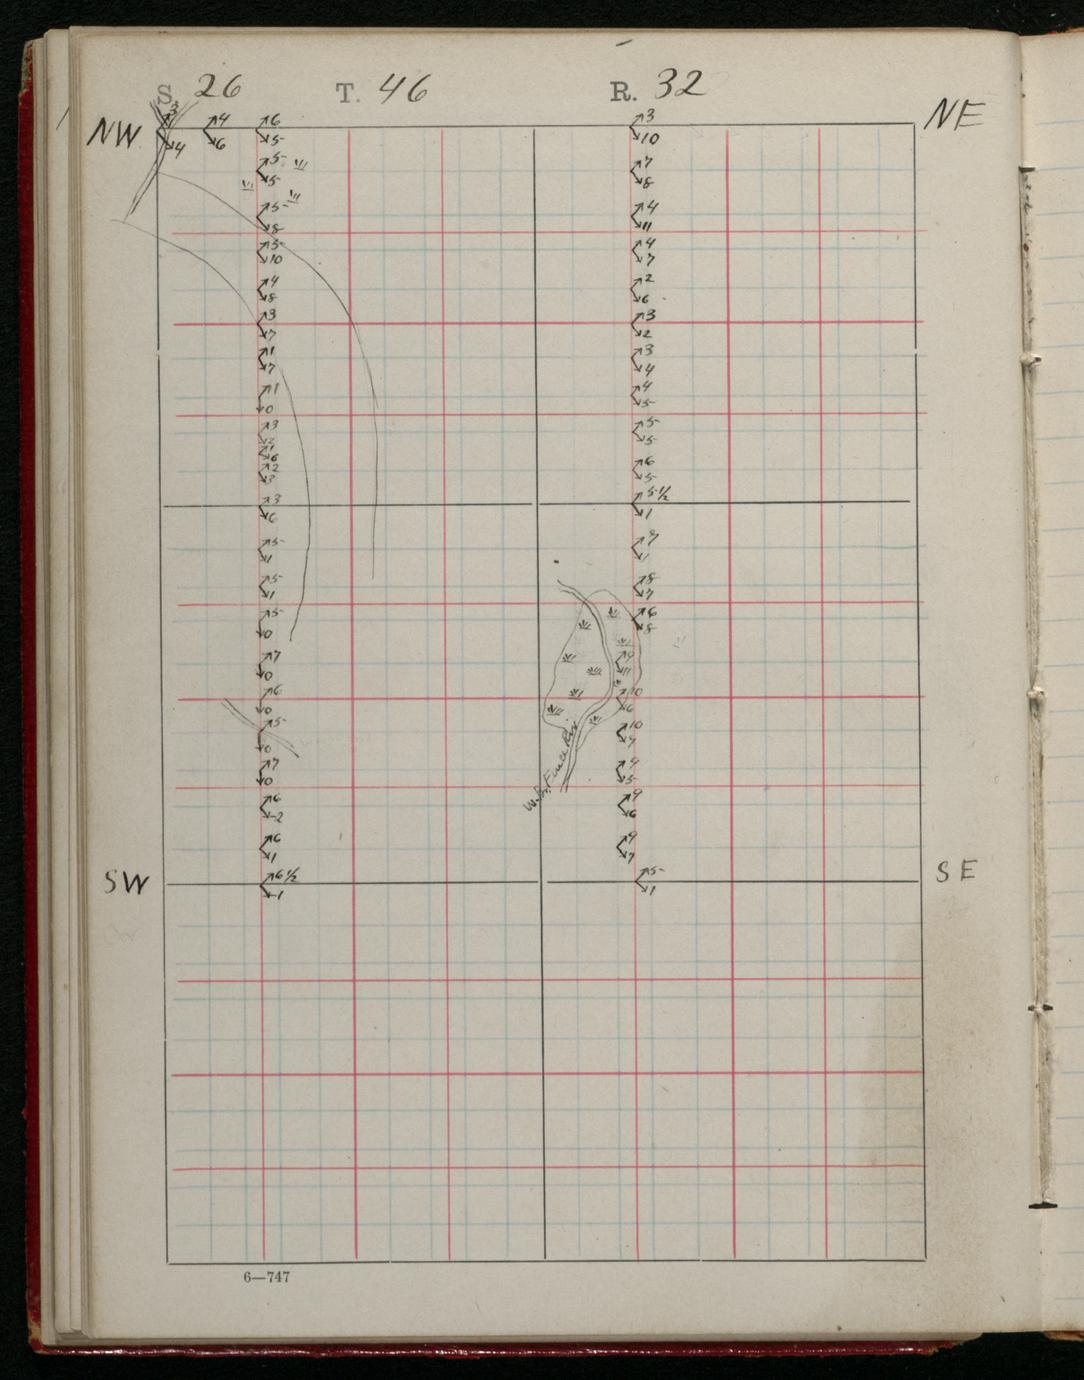 S. 26 T. 46 R. 32
NW NE
3 4 6 3
4 6 5 10
5 7
5 8
5 4
8 11
5 4
10 7
4 2
8 6
3 3
7 2
1 3
7 4
1 4
0 5
3 5
2 5
1
6
2 6
3 5
3 5 1/2
6 1
5 9
1 1
5 8
1 7
5 6
0 8
7 9
0 11
6 10
0 6
5 10
0 7
7 9
0 5
6 9
-2 6
6 9
1 7
SW SE
6 1/2 5
-1 1
6—747